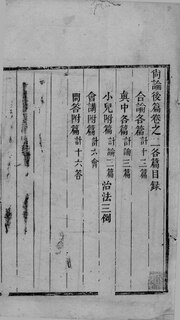 尙論後篇卷之二各篇目錄
合論各篇計十三篇
眞中各篇計論三篇
小兒附篇計論二篇 治法三例
會講附篇計六會
問答附篇計十六答